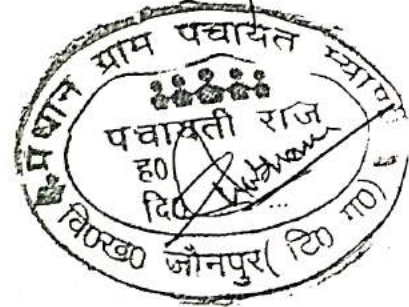 प्रधान ग्राम पंचायत म्याणी
पंचायती राज
ह०
दि०
वि०ख० जौनपुर ( टि० ग०)